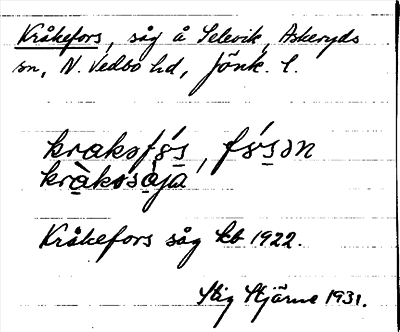 Kråkefors, såg å Selevik, Askeryds
sn, N. Vedbo hd, Jönk. l.
krakəfɷ́s̲, fɷ́s̲ən
krà̲kəsá̲ja
Kråkefors såg kb 1922.
Stig Stjärne 1931.